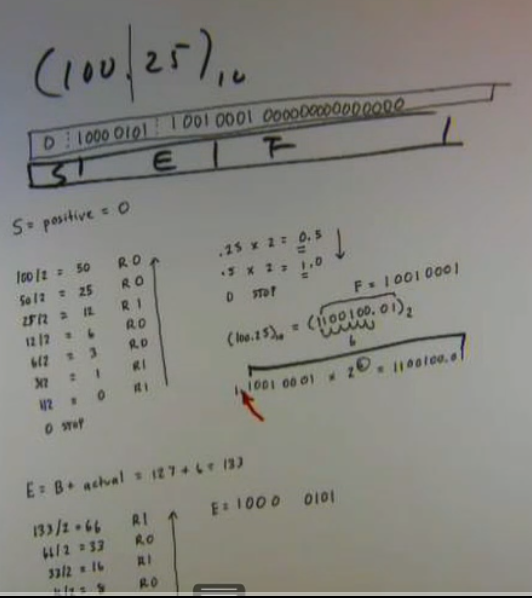 (100.25)10
0 1000 0101 1001 0001 000000000000000
S E F
S = positive = 0
100/2 = 50 R0
50/2 = 25 R0
25/2 = 12 R1
12/2 = 6 R0
6/2 = 3 R0
3/2 = 1 R1
1/2 = 0 R1
0 STOP
.25 x 2 = 0.5
.5 x 2 = 1.0
0 STOP
F = 10010001
(100.25)10 = (1100100.01)2
6
1.10010001 x 2⁶ = 1100100.01
E = B + actual = 127 + 6 = 133
133/2 = 66 R1
66/2 = 33 R0
33/2 = 16 R1
= 8 R0
E = 1000 0101